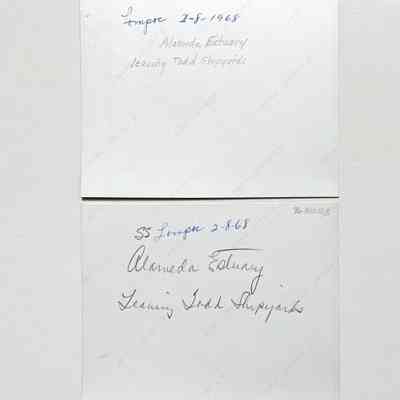 Lompoc 2-8-1968
Alameda Estuary
leaving Todd Shipyards
SS Lompoc 2-8-68
Alameda Estuary
Leaving Todd Shipyards